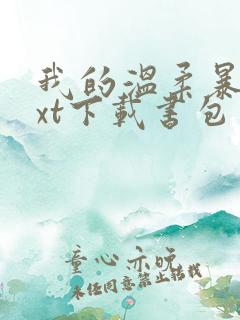 我的溫柔暴
xt下載書包
童心亦晚
未经同意禁止转载